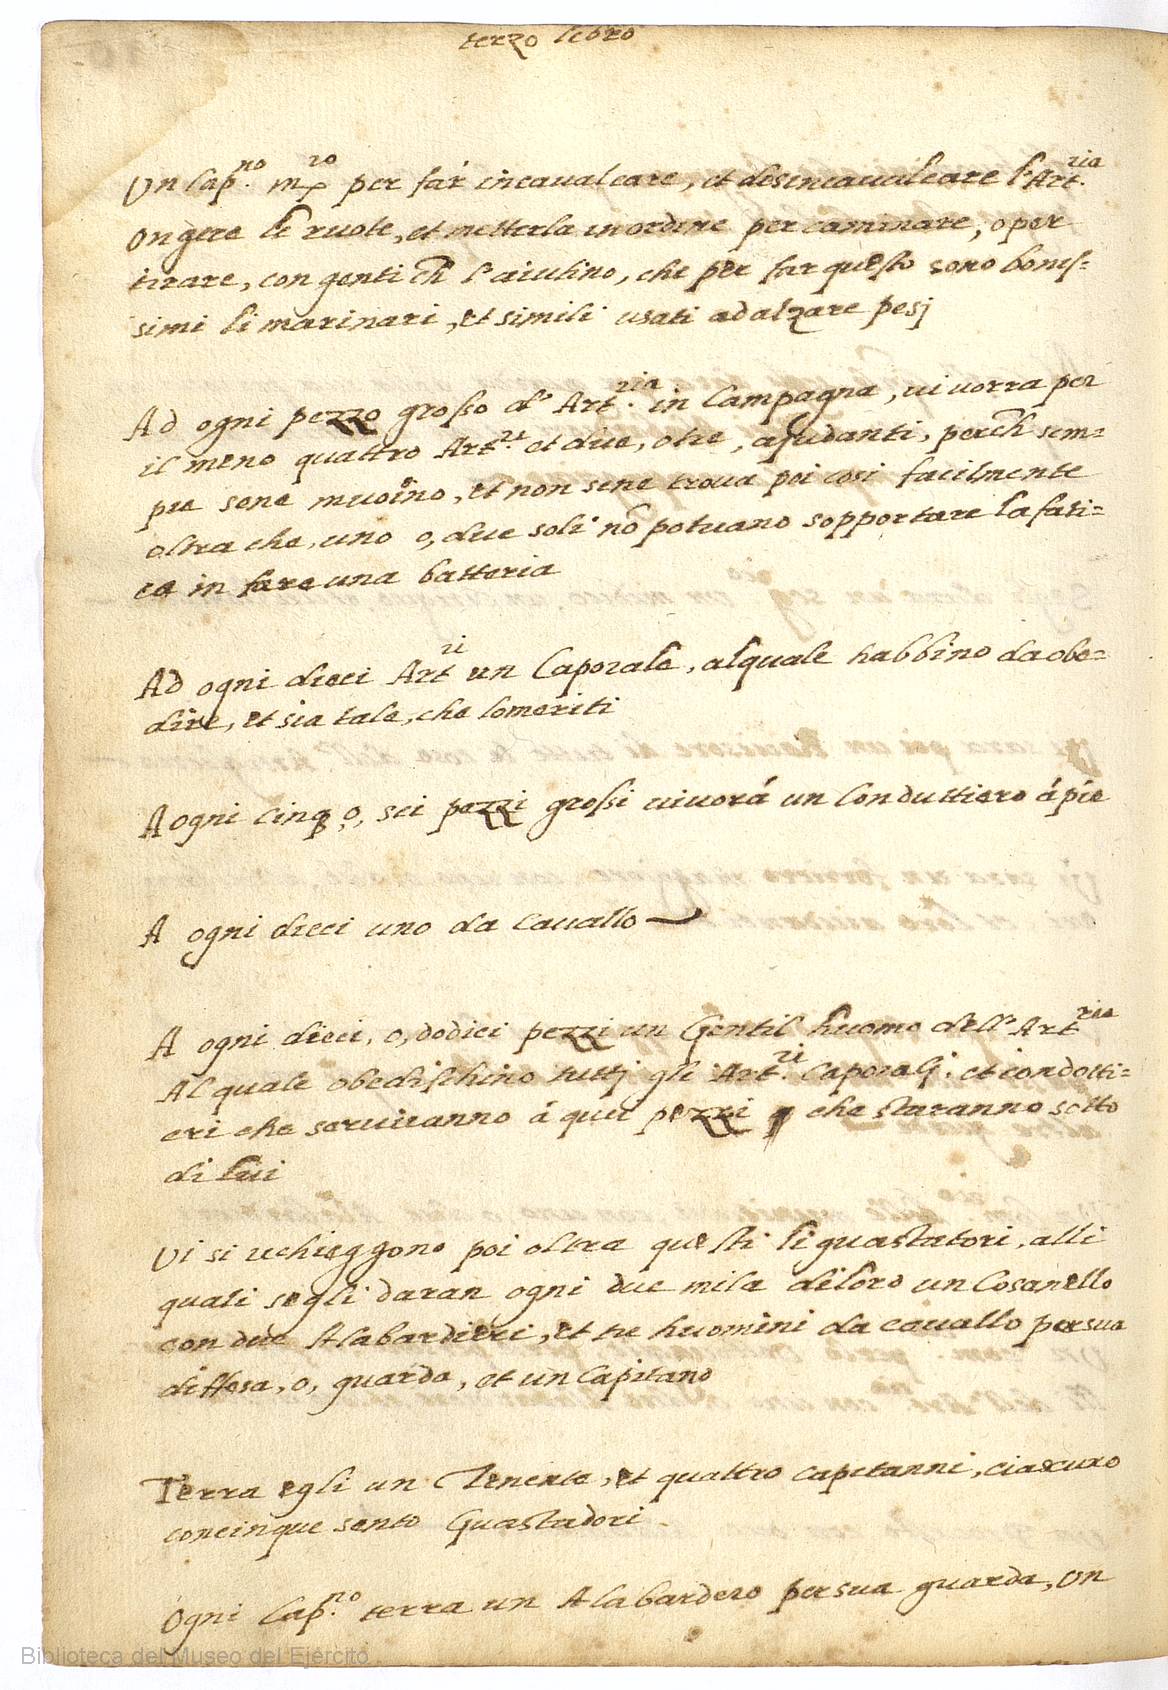 terzo lebro
Un Cap.no m.ro per far incavalcare, et desincavalcare l'Art.ria
ongere le ruote, et metterla in ordine per caminare, o per
tirare, con genti ch l'aiutino, che per far questo sono bonis=
simi li marinari, et simili usati ad alzare pesj
Ad ogni pezzo grosso d' Art.ria in Campagna, vi vorra per
il meno quattro Art.ri et due, o tre, ajudanti, perch sem=
pre sene muoino, et non sene trova poi cosi facilmente
oltra che, uno o, due soli nõ potuano sopportare la fati=
ca in fare una batteria
Ad ogni dieci Art.ri un Caporale, alquale habbino da obe=
dire, et sia tale, che lo meriti
A ogni cinq o, sei pezzi grossi vi vorá un Conduttiero á pie
A ogni dieci uno da Cavallo
A ogni dieci, o, dodici pezzi un Gentil huomo dell' Art.ria
Al quale obedischino tuttj gli Art.ri Caporalj, et condotti=
eri che serviranno á quei pezzi che staranno sotto
di lui
Vi si richieggono poi oltra questi li guastatori, alli
quali segli daran ogni due mila di loro un Cosanello
con due Alabardieri, et tre huomini da cavallo per sua
diffesa, o, guarda, et un Capitano
Terra egli un Tenente, et quattro capitanni, ciascuno
con cinque sento Guastadori
Ogni Cap.no terra un Alabardero per sua guarda, un
Biblioteca del Museo del Ejército